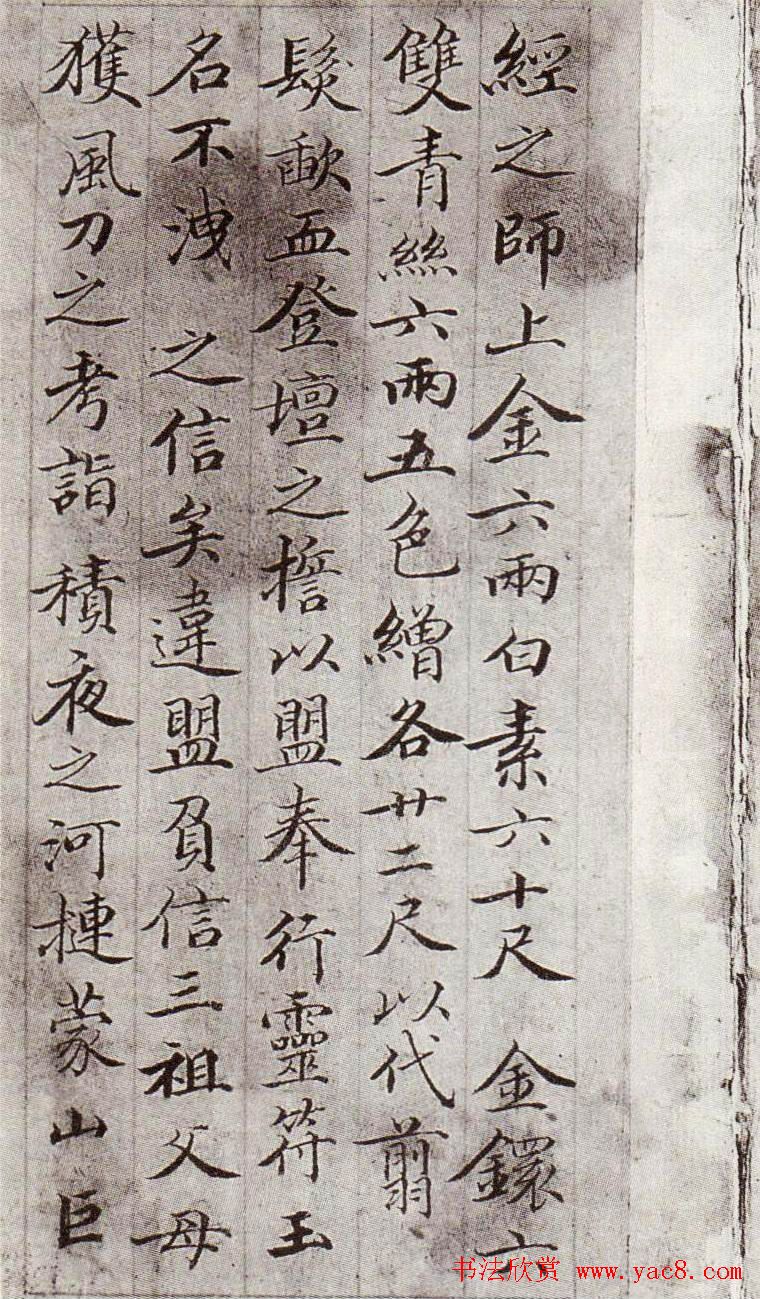 經之師上金六兩白素六十尺 金鐶六
雙青絲六兩五色繒各廿二尺以代翦
髮歃血登壇之擔以盟奉行靈符玉
名不洩 之信矣違盟負信三祖父母
獲風刀之考詣 積夜之河摙蒙山巨
书法欣赏 www.yac8.com